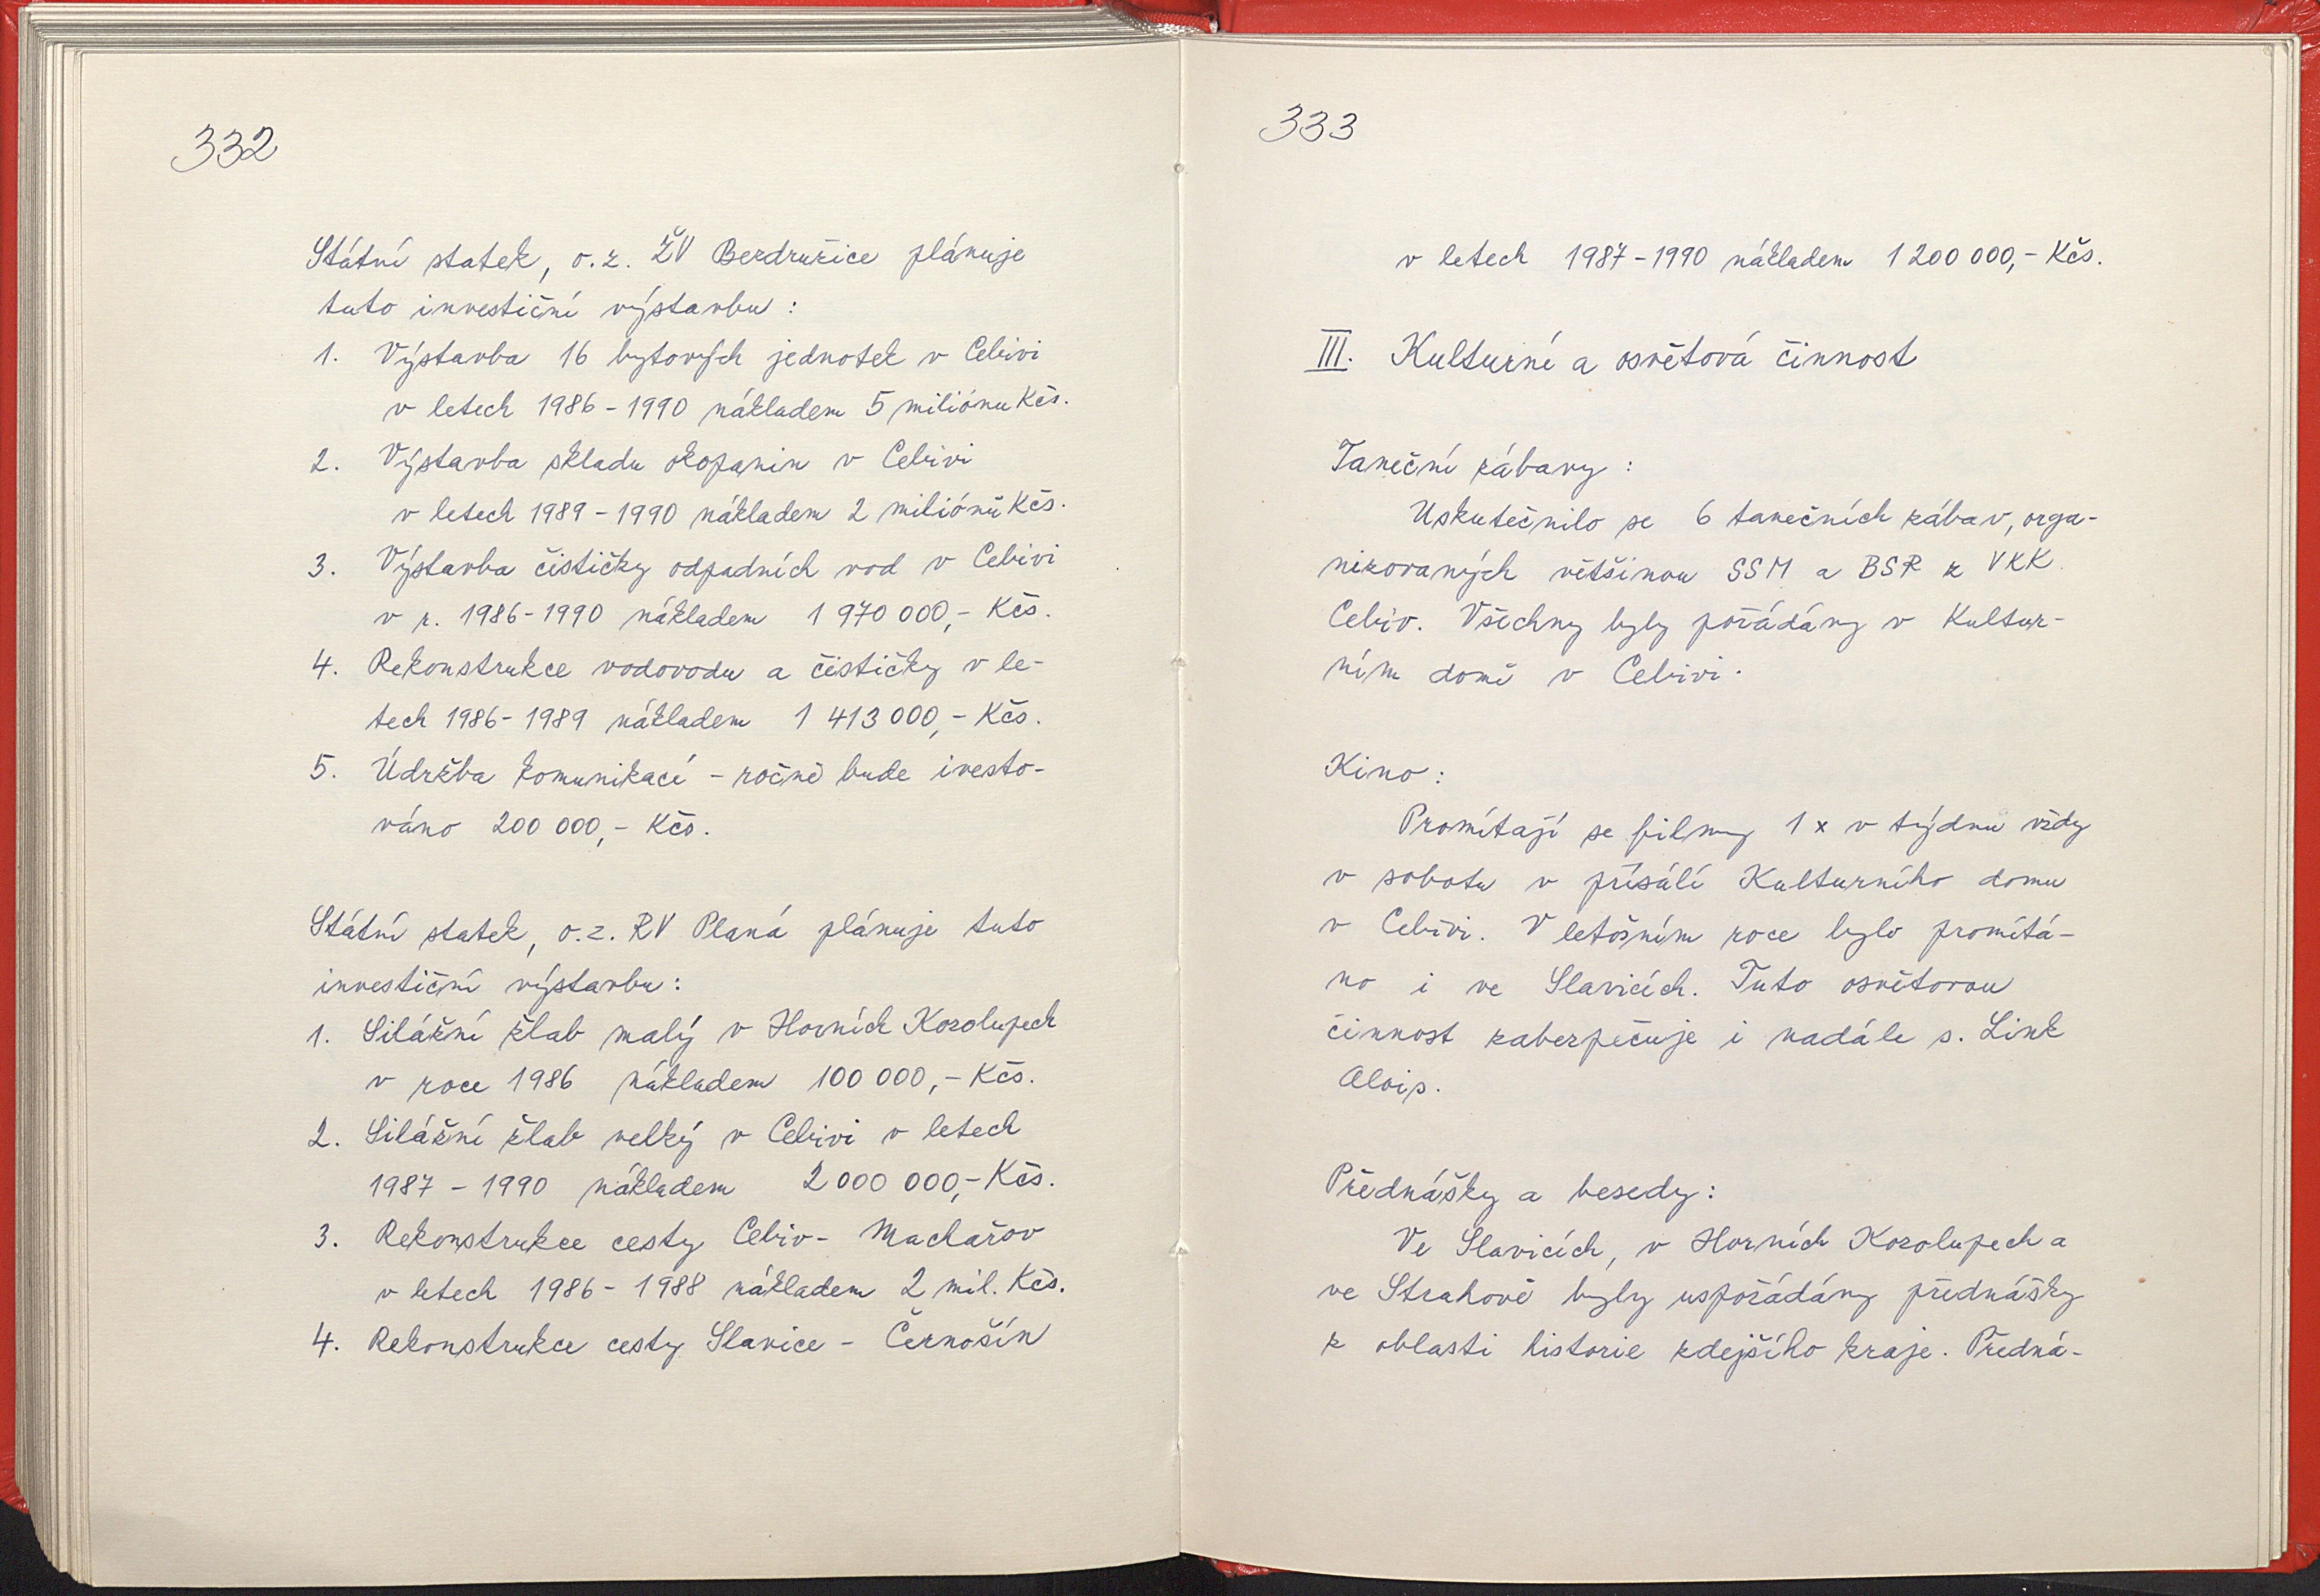 332
Státní statek, o.z. ŽV Bezdružice plánuje
tuto investiční výstavbu:
1. Výstavba 16 bytových jednotek v Cebivi
v letech 1986-1990 nákladem 5 miliónu Kčs.
2. Výstavba skladu okopanin v Cebivi
v letech 1989-1990 nákladem 2 miliónů Kčs.
3. Výstavba čističky odpadních vod v Cebivi
v r. 1986-1990 nákladem 1 970 000,- Kčs.
4. Rekonstrukce vodovodu a čističky v le-
tech 1986-1989 nákladem 1 413 000,- Kčs.
5. Údržba komunikací - ročně bude ivesto-
váno 200 000,- Kčs.
Státní statek, o.z. RV Planá plánuje tuto
investiční výstavbu:
1. Silážní žlab malý v Horních Kozolupech
v roce 1986 nákladem 100 000,- Kčs.
2. Silážní žlab velký v Cebivi v letech
1987 - 1990 nákladem 2 000 000,- Kčs.
3. Rekonstrukce cesty Cebiv - Machařov
v letech 1986-1988 nákladem 2 mil. Kčs.
4. Rekonstrukce cesty Slavice - Černošín
333
v letech 1987-1990 nákladem 1 200 000,- Kčs.
III. Kulturní a osvětová činnost
Taneční zábavy:
Uskutečnilo se 6 tanečních zábav, orga-
nizovaných většinou SSM a BSP z VKK
Cebiv. Všechny byly pořádány v Kultur-
ním domě v Cebivi.
Kino:
Promítají se filmy 1x v týdnu vždy
v sobotu v přísálí Kulturního domu
v Cebivi. V letošním roce bylo promítá-
no i ve Slavicích. Tuto osvětovou
činnost zabezpečuje i nadále s. Link
Alois.
Přednášky a besedy:
Ve Slavicích, v Horních Kozolupech a
ve Strahově byly uspořádány přednášky
z oblasti historie zdejšího kraje. Předná-